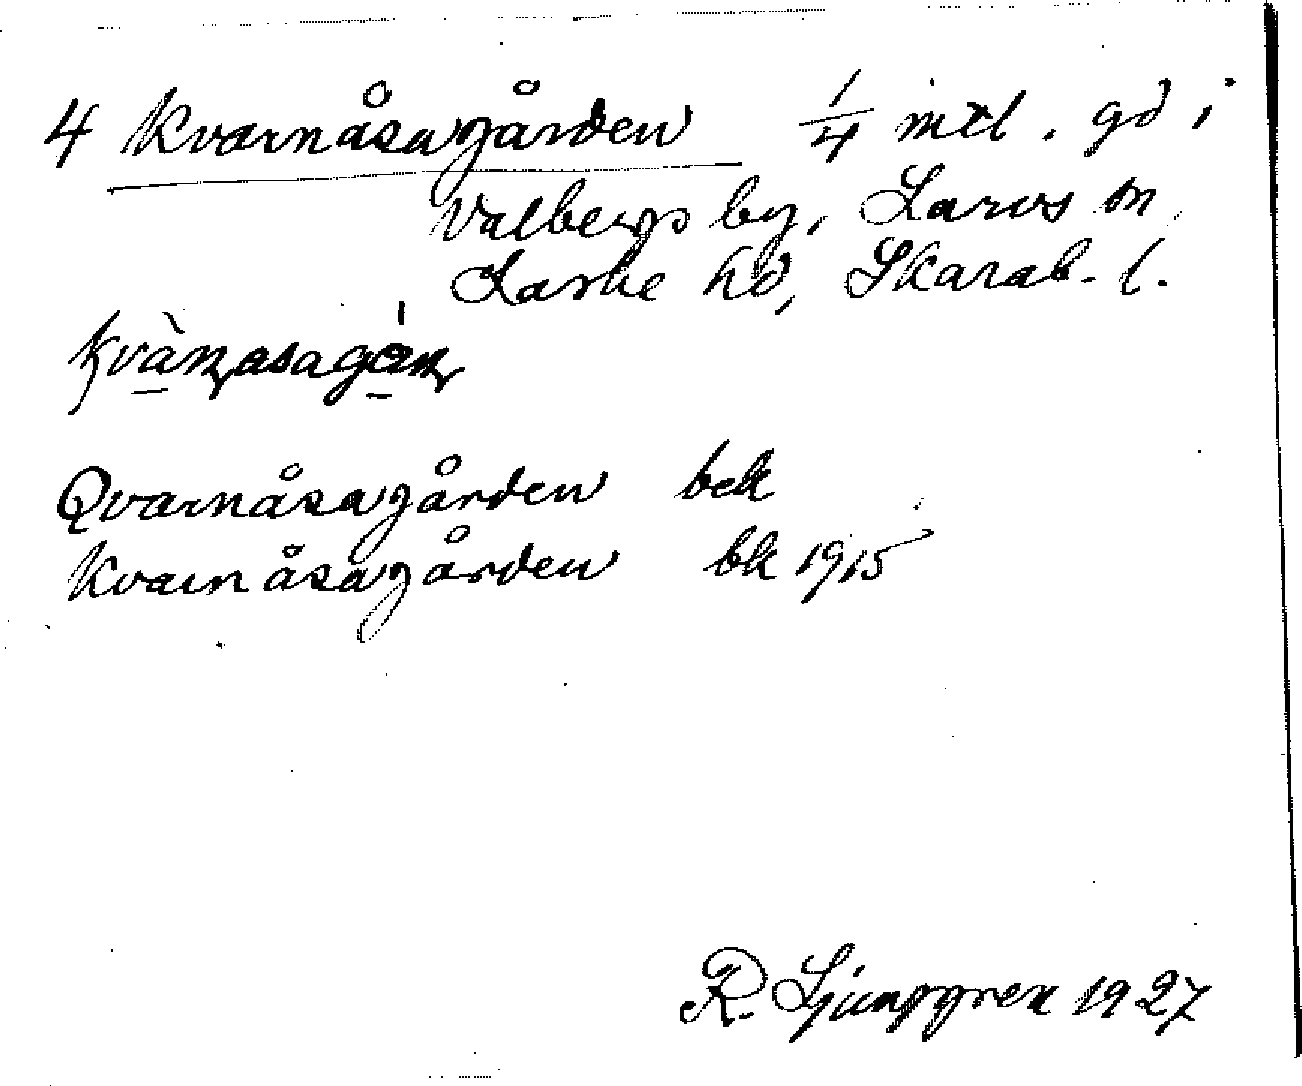 4 Kvarnåsagården 1/4 mtl. gd i
Valbergs by, Larvs sn,
Laske hd, Skarab. l.
kvànasagán
Qvarnåsagården bek
Kvarnåsagården bk 1915
R. Ljunggren 1927